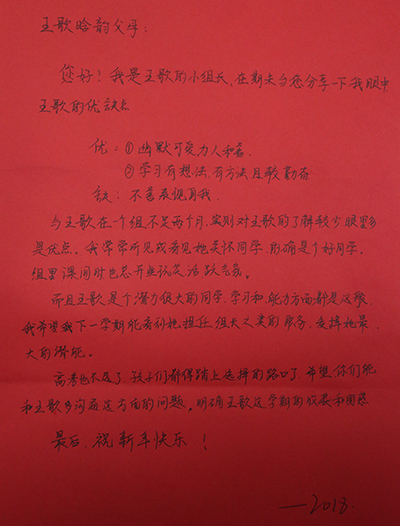 王歌晗韵父母:
您好!我是王歌的小组长,在期末与您分享一下我眼中
王歌的优缺点
优:①幽默可爱力人和善
②学习有想法,有方法且较勤奋
缺:不善表现自我.
与王歌在一个组不足两个月,实则对王歌的了解较少眼里多
是优点。我常常听见或看见她关怀同学,的确是个好同学,
组里课间时也总开些玩笑活跃气氛。
而且王歌是个潜力很大的同学,学习和能力方面都是这般,
我希望我下一学期能看到她担任组长之类的职务,发挥她最
大的潜能。
高考也不远了,孩子们都得踏上选择的路口了,希望你们能
和王歌多沟通这方面的问题。明确王歌这学期的收获和困惑
最后,祝新年快乐!
——2018.